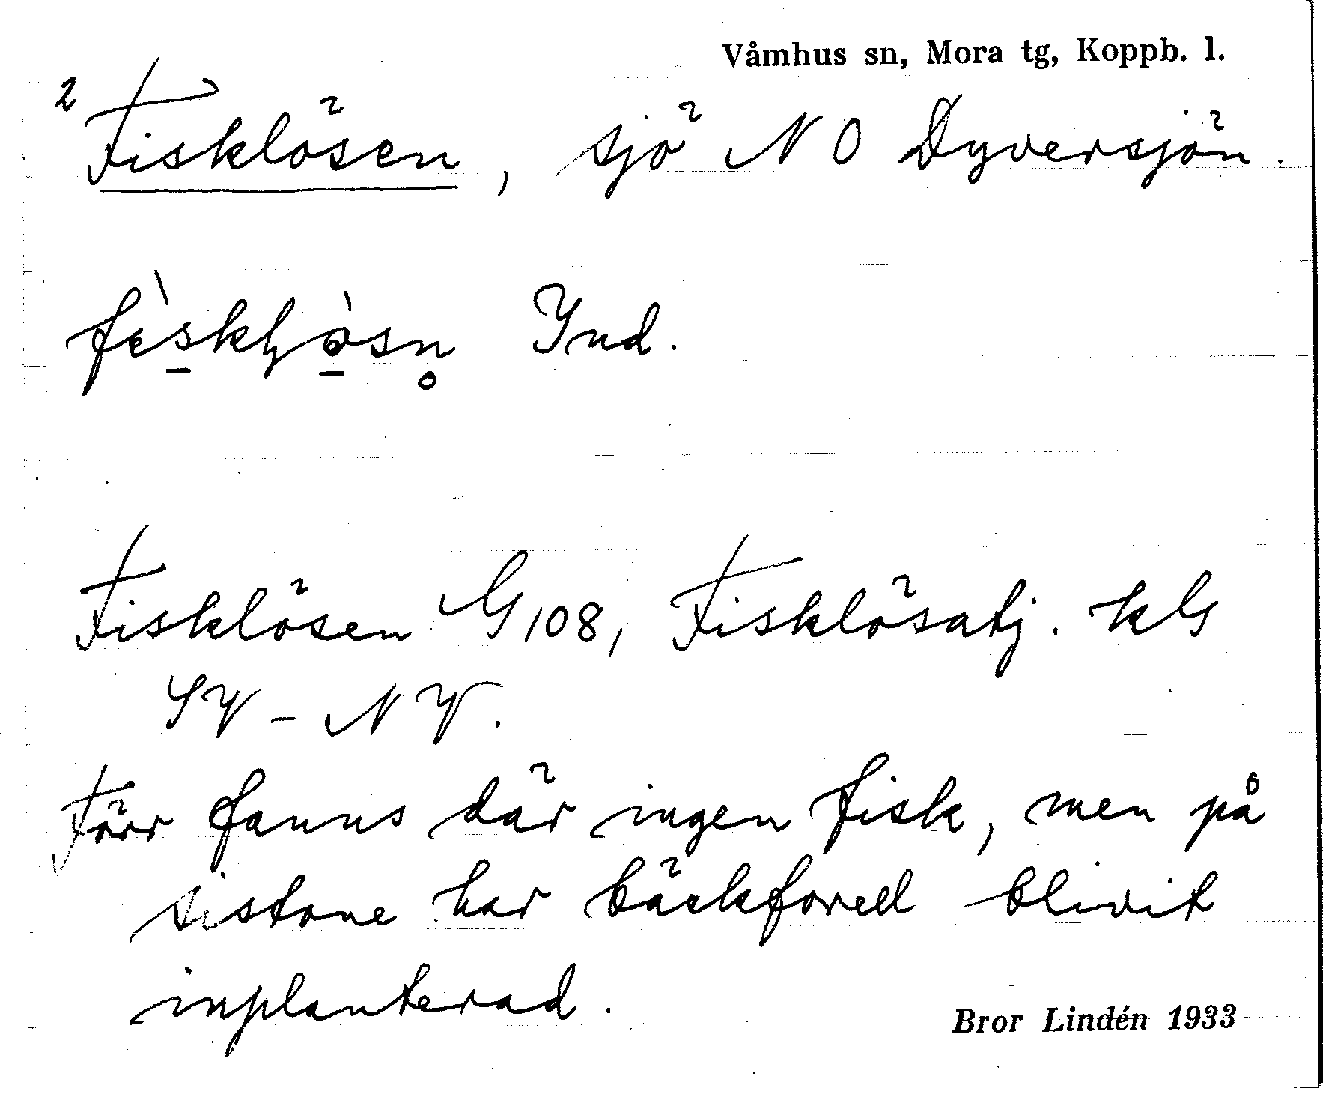 Våmhus sn, Mora tg, Koppb. l.
2 Fisklösen, sjö NO Dyversjön.
Ynd.
Fisklösen G 108, Fisklösatj. kG
SV - NV.
Förr fanns där ingen fisk, men på
sistone har bäckforell blivit
inplanterad.
Bror Lindén 1933